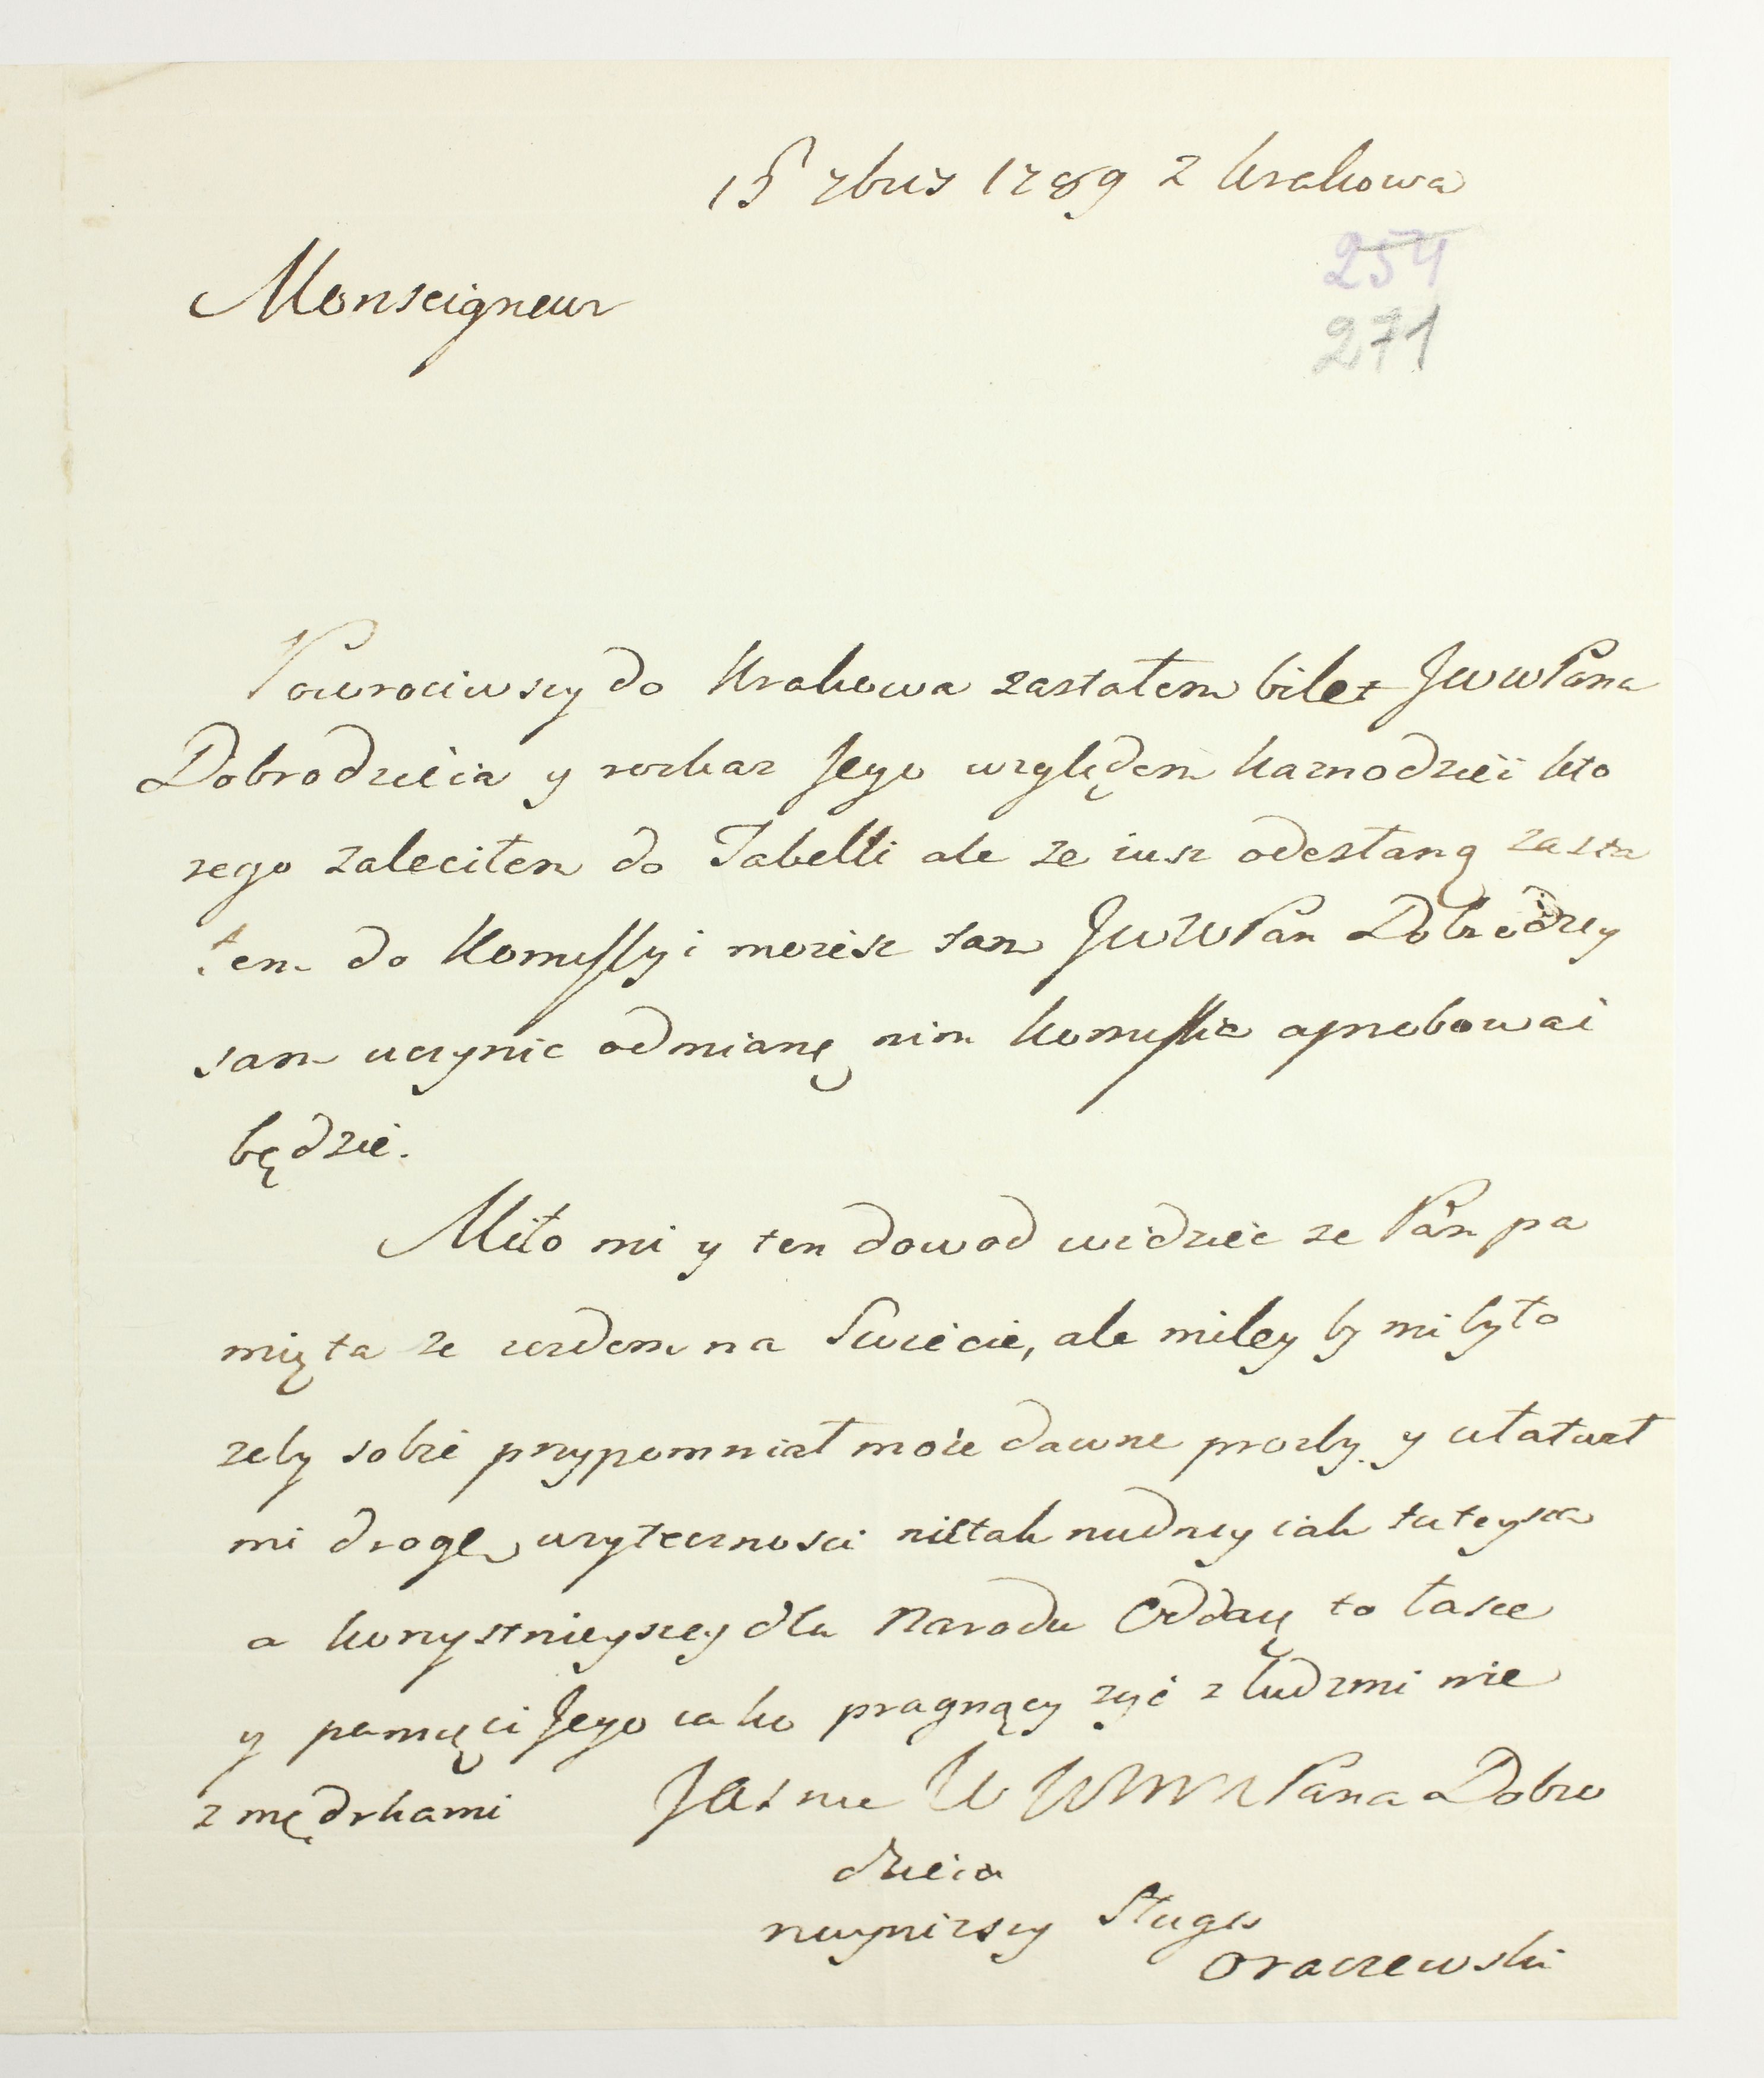 15 7bris 1789 z Krakowa
254
271
Monseigneur
Powrociwszy do Krakowa zastałem bilet JWWPana
Dobrodzieia y rozkaz Jego względem Kaznodzieii kto
rego zaleciłem do Tabelli ale ze iusz odesłaną zasta
łem do Komissyi mozesz sam JWWPan Dobrodziey
sam uczynic odmianę nim Komissia aprobowac
będzie.
Miło mi y ten dowod widziec ze Pan pa
mięta ze iestem na Swiecie, ale miley by mi było
zeby sobie przypomniał moie dawne prozby y ułatwił
mi drogę uzytecznosci nietak nudney iak tuteysza
a korzystnieyszey dla Narodu Oddaię to łasce
y pamięci Jego iako pragnący zyć z ludzmi nie
z mędrkami Jasnie W WMM Pana Dobro
dzieia
naynizszy Sługa
Oraczewski